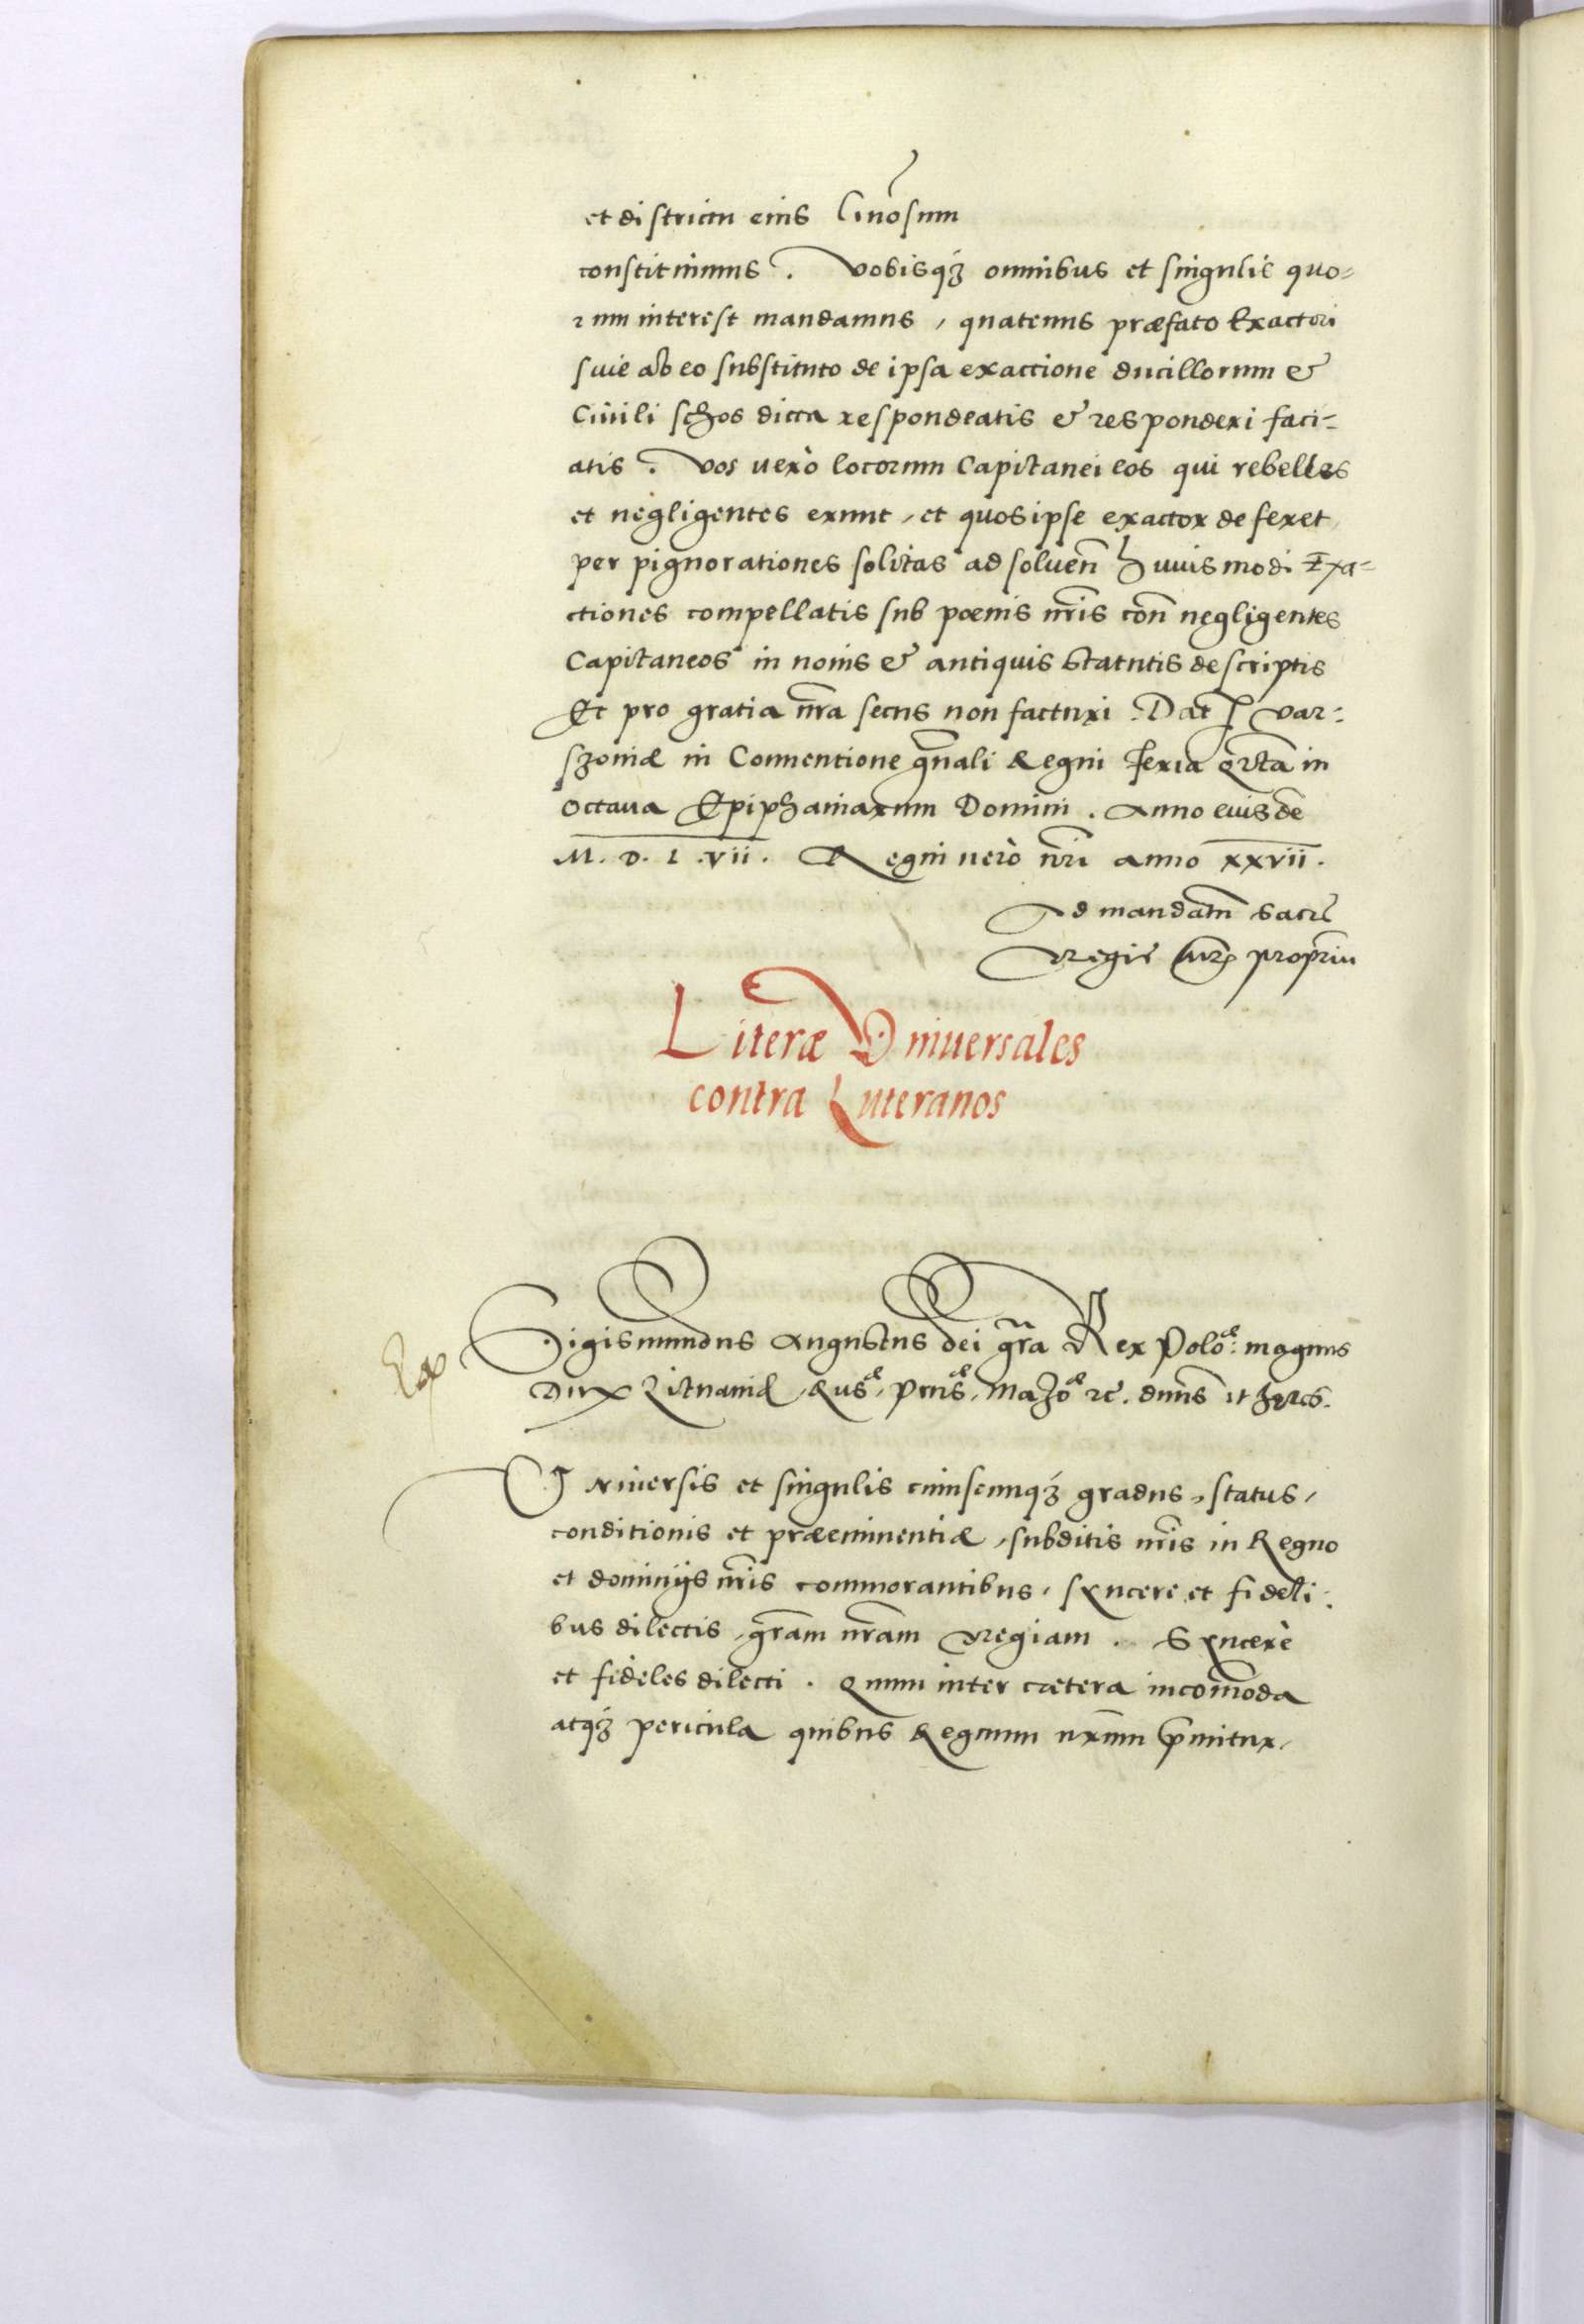 et districtu eius Gnosnm
constituimus. Vobisq́ꝫ omnibus et singulis quo=
rum interest mandamus, quatenus præfato Exactori
siue ab eo substituto de ipsa exactione ducillorum &
Ciuili schos dicta respondeatis & responderi faci=
atis. Vos uerò locorum Capitanei eos qui rebelles
et negligentes erunt, et quos ipse exactor deferet,
per pignorationes solitas ad soluen̄ huiusmodi Exa=
ctiones compellatis sub poenis nr̄is con̄ negligentes
Capitaneos in nouis & antiquis statutis descriptis
Et pro gratia nr̄a secus non facturi. Dat Var=
szouiæ in Conuentione gn̄ali Regni feria qrta in
Octaua Epiphaniarum Domini. Anno eiusdē
M. D. L .vii. Regni uerò nr̄i anno xxvii.
Ad mandatm̄ Sacrę
Regię proprium
Literæ Vniuersales
contra Luteranos
Sigismundus Augustus Dei gr̄a Rex Poloæ: magnus
Dux Lituaniæ, Rusæ, Prusæ, Mazoæ ꝛc̄. dn̄us et hęres.
Vniuersis et singulis cuiuscunq́ꝫ gradus, status,
conditionis et præeminentiæ, subditis nr̄is in Regno
et dominijs nr̄is commorantibus, syncerè et fideli:
bus dilectis, grām nrām Regiam. Syncerè
et fideles dilecti. Quum inter cætera incom̄oda
atq́ꝫ pericula quibus Regnum nr̄um p̄mitur,